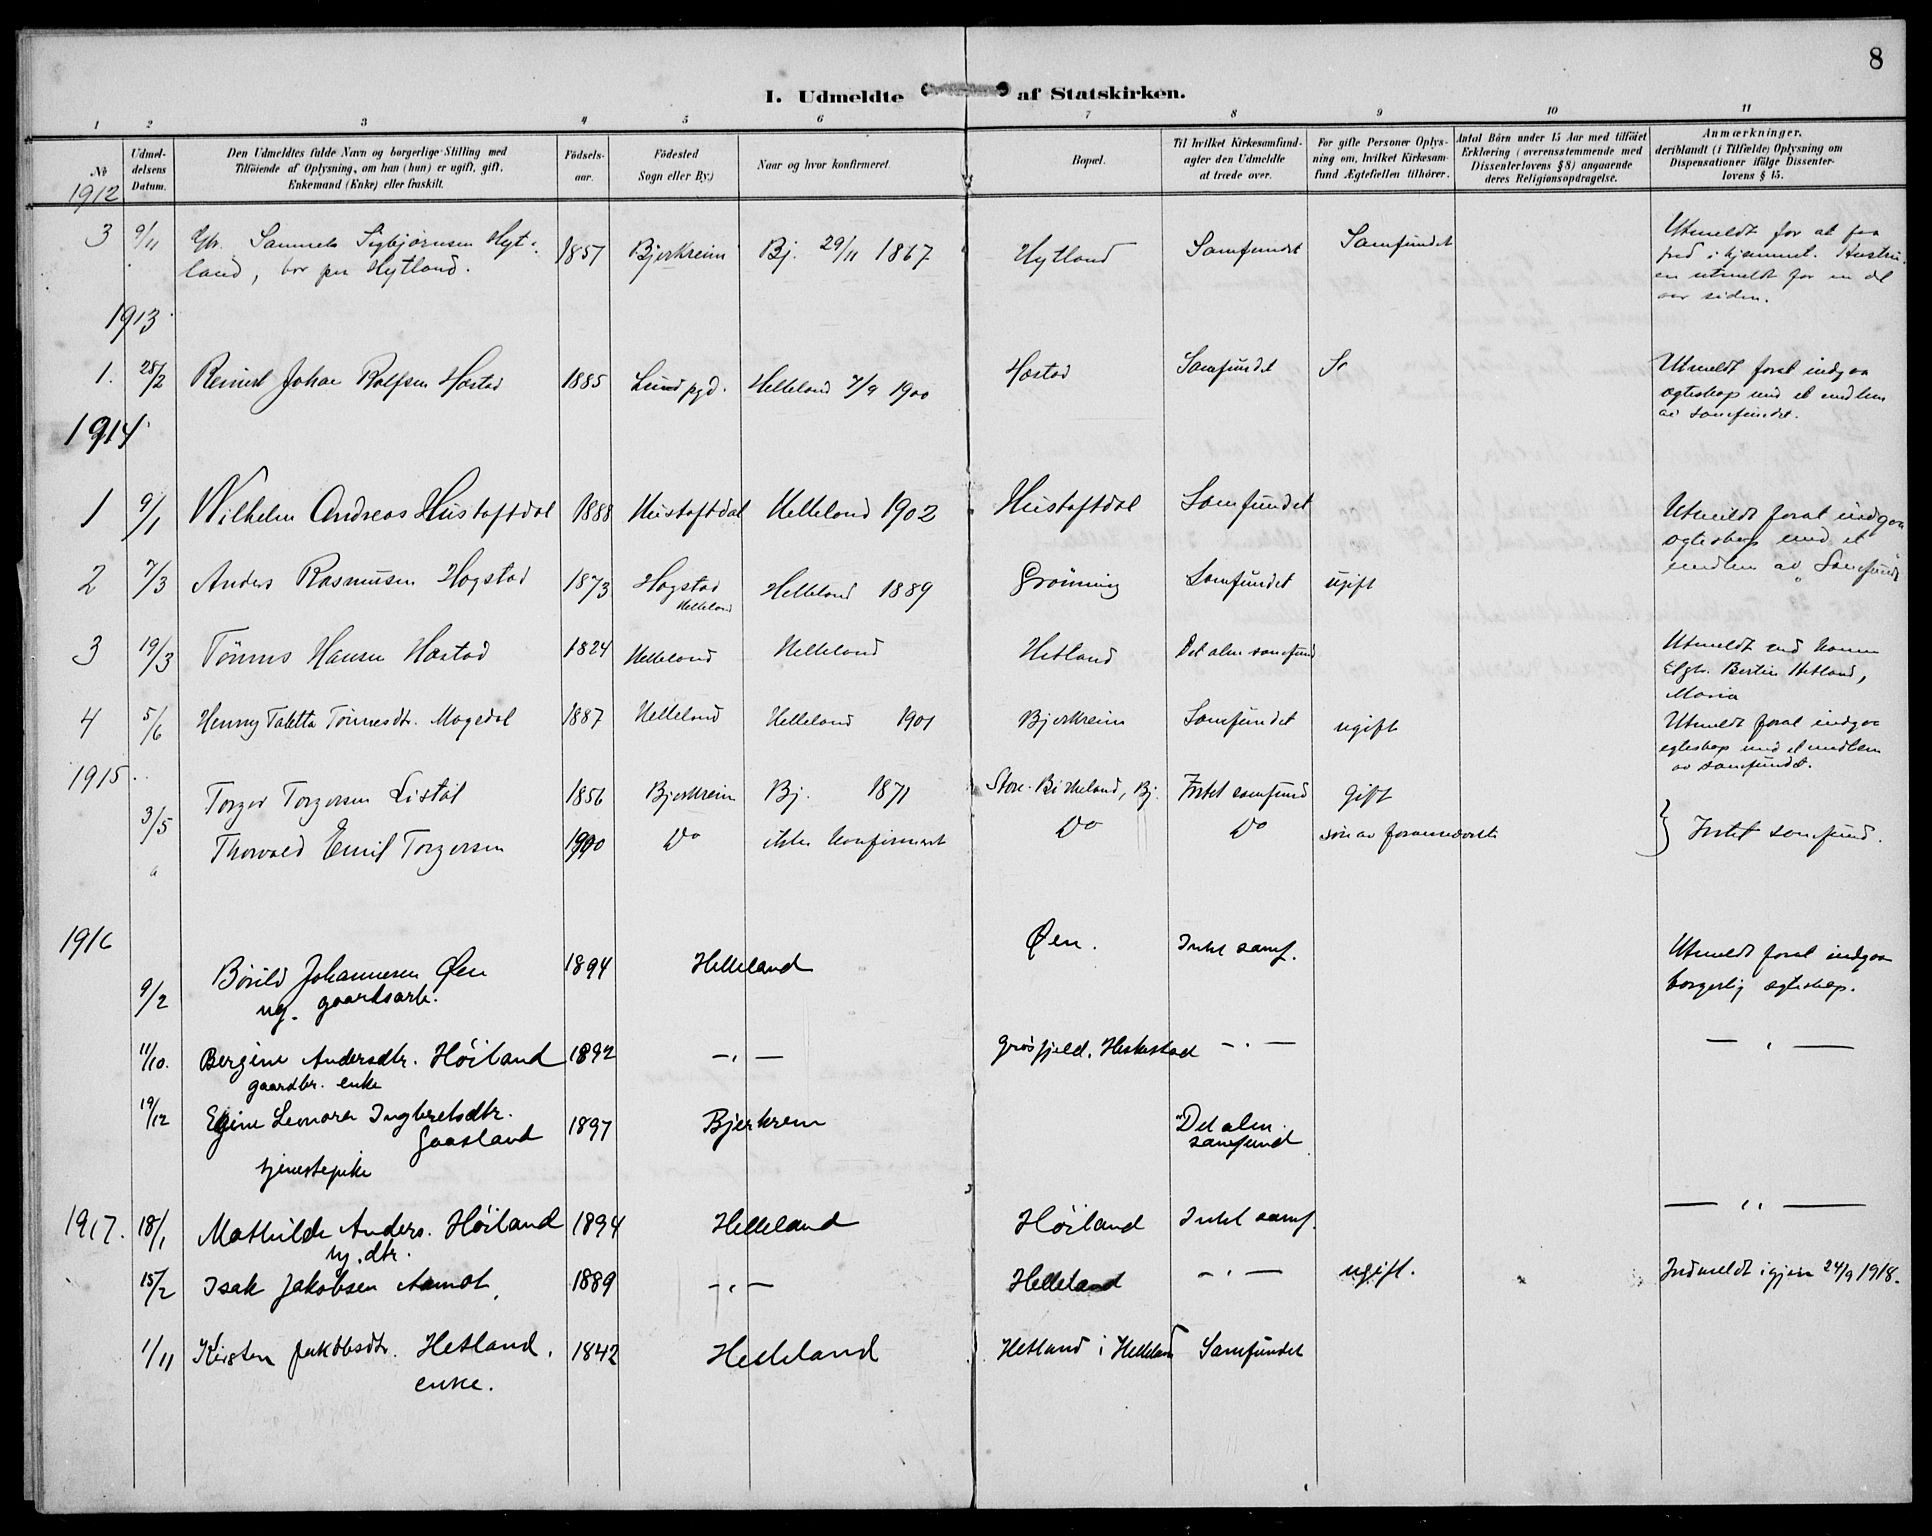 8
I. Udmeldte af Statskirken.
1 2 3 4 5 6 7 8 9 10 11
No
Udmeldelsens Datum.
Den Udmeldtes fulde Navn og borgerlige Stilling med
Tilföiende af Oplysning, om han (hun) er ugift, gift,
Enkemand (Enke) eller fraskilt.
Födselsaar.
Födested
Sogn eller By.)
Naar og hvor konfirmeret.
Bopæl.
Til hvilket Kirkesamfund-
agter den Udmeldte
at træde over.
For gifte Personer Oplys-
ning om, hvilket Kirkesam-
fund Ægtefællen tilhörer.
Antal Börn under 15 Aar med tilföiet
Erklæring (overensstemmende med
Dissenterlovens § 8) angaaende
deres Religionsopdragelse.
Anmærkninger,
deriblandt (i Tilfælde) Oplysning om
Dispensationer ifölge Dissenter-
lovens § 15.
1912
3 9/11 Samuel Sigbjørnsen Hyt- 1857 Bjerkreim Bj. 29/11 1867 Hytland Samfundet Samfundet Utmeldt for at faa
land, bor paa Hytland. fred i hjemmet. Hustru-
en utmeldt for en del
aar siden.
1913
1. 28/2 Reinert Johan Rolfsen Hæstad 1885 Lund pgd. Helleland 7/9 1900 Hæstad Samfundet Utmeldt forat indgaa
egteskap med et medlem
av samfundet.
1914
1 9/1 Wilhelm Andreas Hustoftdal 1888 Hustoftdal Helleland 1902 Hustoftdal Samfundet Utmeldt forat indgaa
egteskap med et
medlem av Samfundet
2 7/3 Anders Rasmusen Hogstad 1873 Hogstad Helleland 1889 Grönning Samfundet ugift
Helleland
3 19/3 Tönnes Hansen Hæstad 1824 Helleland Helleland Hetland Det alm samfund Utmeldt ved
Bertin Hetland,
Maria
4 5/6 Henny Taletta Tönnesdtr. Magedal 1887 Helleland Helleland 1901 Bjerkreim Samfundet ugift Utmeldt forat indgaa
egteskap med et medlem
av samfundet.
1915
3/5 Torger Torgersen Listöl 1856 Bjerkreim Bj. 1871 Store-Birkeland, Bj. Intet samfund gift
Thorvald Emil Torgersen 1900 Do ikke konfirmert Do Do sön av forannævnte } Intet samfund.
1916
9/2 Börild Johannesen Øen 1894 Helleland Øen. Intet samf. Utmeldt forat indgaa
ug. gaardsarb. borgerlig egteskap.
11/10. Bergine Andersdtr. Höiland 1892 —„— Grösfjeld, Heskestad —„— —„—
gaardbr. enke
19/12 Egine Leonora Ingbretsdtr. 1897 Bjerkrem Det alm.
Gaasland samfund
tjenestepike
1917. 18/1 Mathilde Anders. Höiland 1894 Helleland Höiland Intet samf. —„—
ug. dtr.
15/2 Isak Jakobsen Aamot 1889 —„— Helleland —„— ugift. Indmeldt igjen 24/9 1918.
1/11 Kirsten Jakobsdtr. Hetland. 1842 Helleland Hetland i Helleland Samfundet
enke.